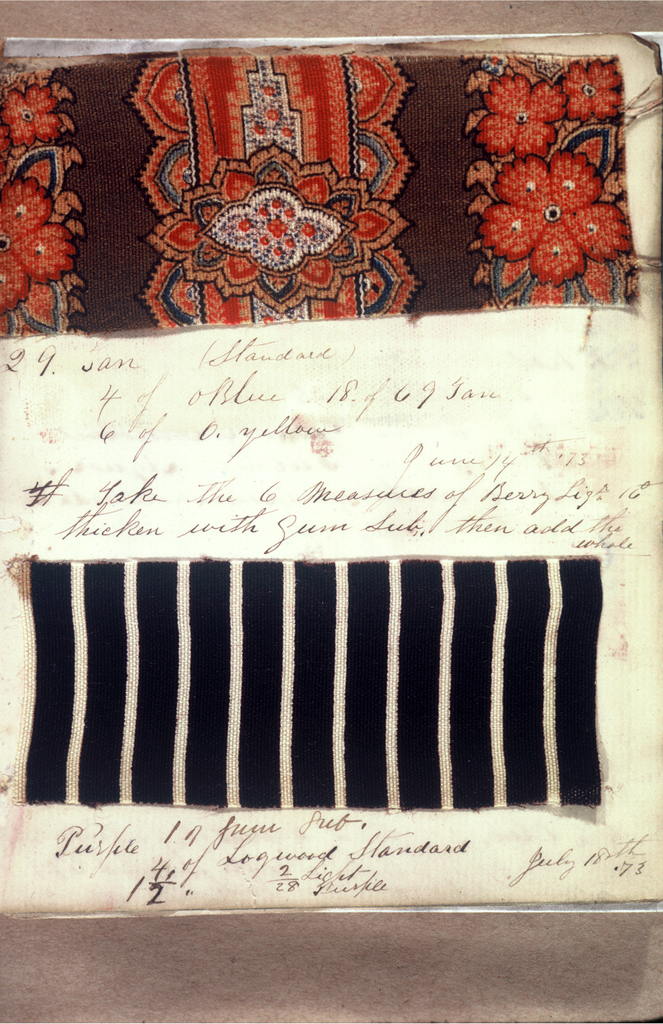 29. Tan (Standard)
4 of oBlue 18. of 69 Tan
6 of O. yellow
June 14th '73
# Take the 6 Measures of Berry Liq. 16°
thicken with Gum Sub. then add the
whole
Purple 1 of Gum Sub.
4 of Logwood Standard
1 1/2 " 2/28 Light Purple
July 18th '73